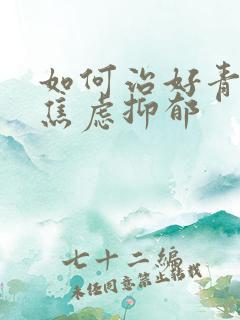 如何治好青
焦虑抑郁
七十二编
未经同意禁止转载